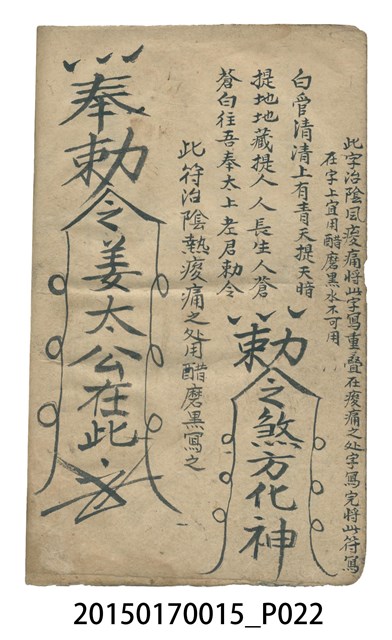 此字治陰風痠痛將此字寫重疊在痠痛之处字寫完將此符寫
在字上宜用醋磨黑水不可用
白管清清上有青天提天暗
提地地藏提人人長生人蒼
蒼白往吾奉太上老君勅令
勅令煞方化神
此符治陰熱痠痛之处用醋磨黑寫之
奉勅令姜太公在此
20150170015_P022